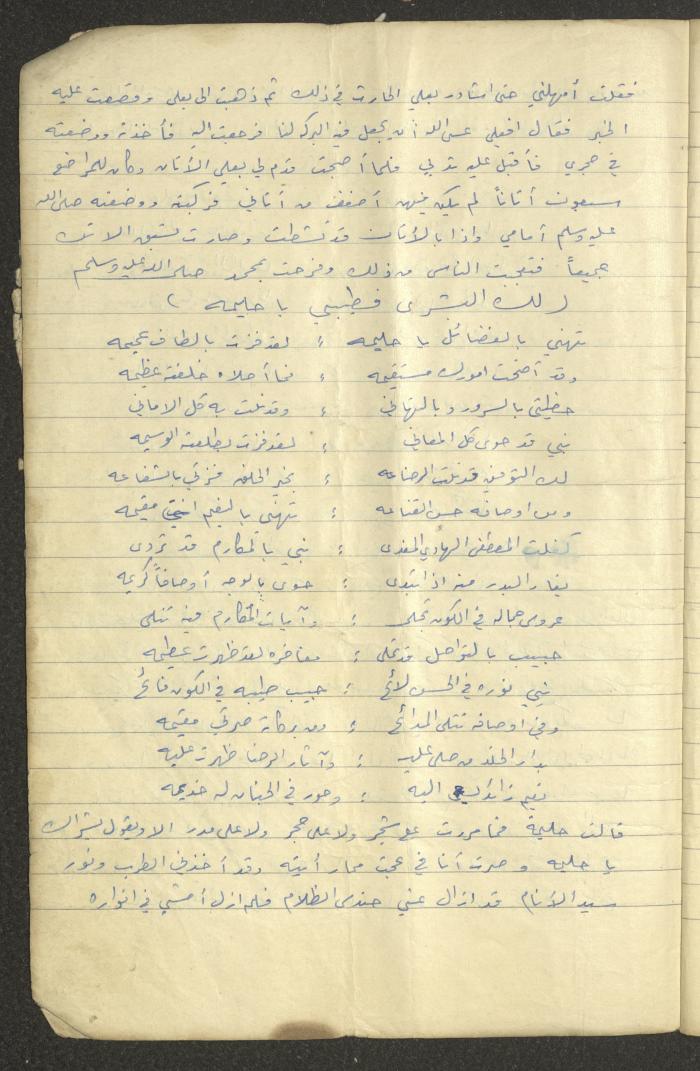 فقلت أمهلني حتى اشاور بعلي الحارث في ذلك ثم ذهبت الى بعلي وقصصت عليه
الخبر فقال افعلي عسى الله أن يجعل فيه البركة لنا فرجعت اليه فأخذته ووضعته
في حجري فأقبل عليه ثديي فلما أصبحت قدم لي بعلي الأتان وكان للمراضع
سبعون أتاناً لم يكن فيهن أضعف من أتاني فركبته ووضعته صلى الله
عليه وسلم أمامي واذا بالأتان قد نشطت وصارت تسبق الاتن
جميعاً فتعجبت الناس من ذلك وفرحت بمحمد صلى الله عليه وسلم
( لك البشرى فطيبي يا حليمه )
تهني بالفضائل يا حليمه ؛ لقد فزت بالطاف عميمه
وقد أضحت امورك مستقيمه ؛ فما أحلاه خلفته عظيمه
حظيتي بالسرور وبالتهاني ؛ وقد نلت به كل الاماني
نبي قد حوى كل المعاني ؛ لقد فزت بطلعته الوسيمه
لك التوفيق قد نلت الرضاعه ؛ بخير الخلق فزتي بالشفاعه
ومن اوصافه حسن القناعه ؛ تهني بالنعيم انتي مقيمه
كفلت المصطفى الهادي المفدى ؛ نبي بالمكارم قد تردى
يغار البدر منه اذا تبدى ؛ حوى بالوجه أوصافاً كريمه
عروس جماله في الكون تجلى ؛ وآيات المكارم فيه تتلى
حبيب بالتواصل قد تملى ؛ مفاخره لقد ظهرت عظيمه
نبي نوره في الحسن لائح ؛ حبيب طيبه في الكون فائح
وفي اوصافه تتلى المدائح ؛ ومن بركاته صرتي مقيمه
بدار الخلد من صلى عليه ؛ وآثار الرضا ظهرت عليه
نعيم زائد اليه ؛ وحور في الجنان له خديمه
قالت حليمة فما مررت على شجر ولا على حجر ولا على مدر الا ويقول بشراك
يا حليمه وصرت أنا في عجب مما رأيته وقد أخذني الطرب ونور
سيد الأنام قد ازال عني حندس الظلام فلم ازل أمشي في انواره